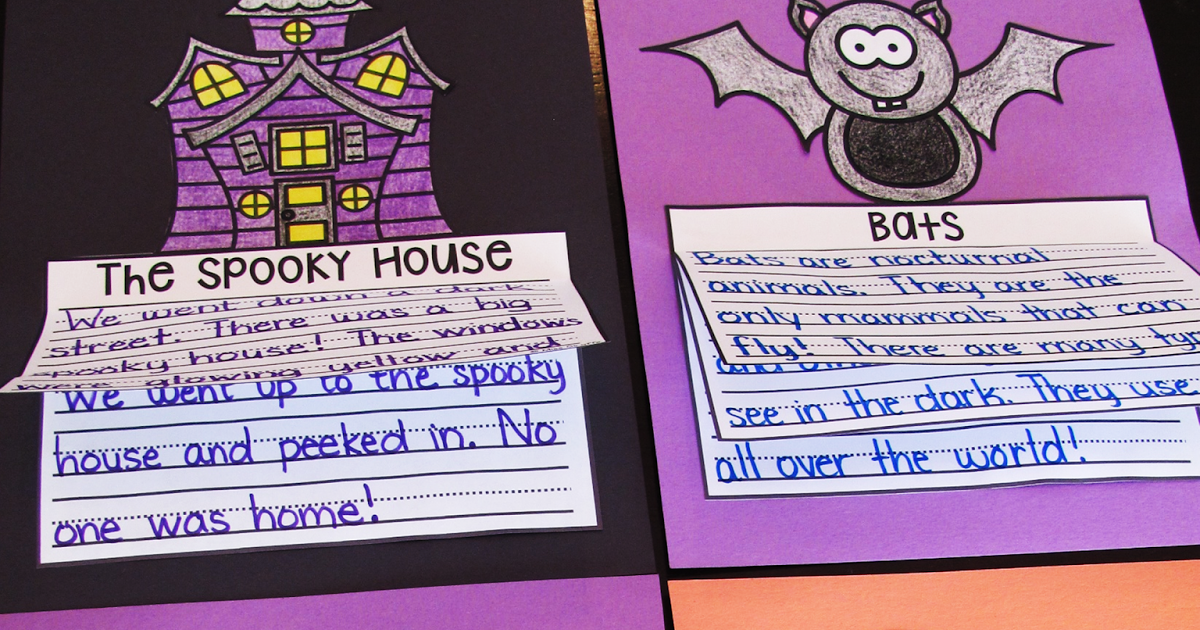 The Spooky House
We went down a dark
street. There was a big
spooky house! The windows
were glowing yellow and
We went up to the spooky
house and peeked in. No
one was home!
Bats
Bats are nocturnal
animals. They are the
only mammals that can
fly! There are many
see in the dark. They use
all over the world!